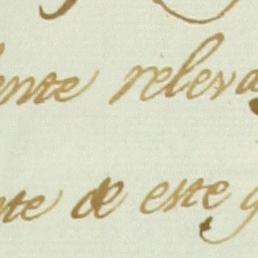 ente releva
nte de este g